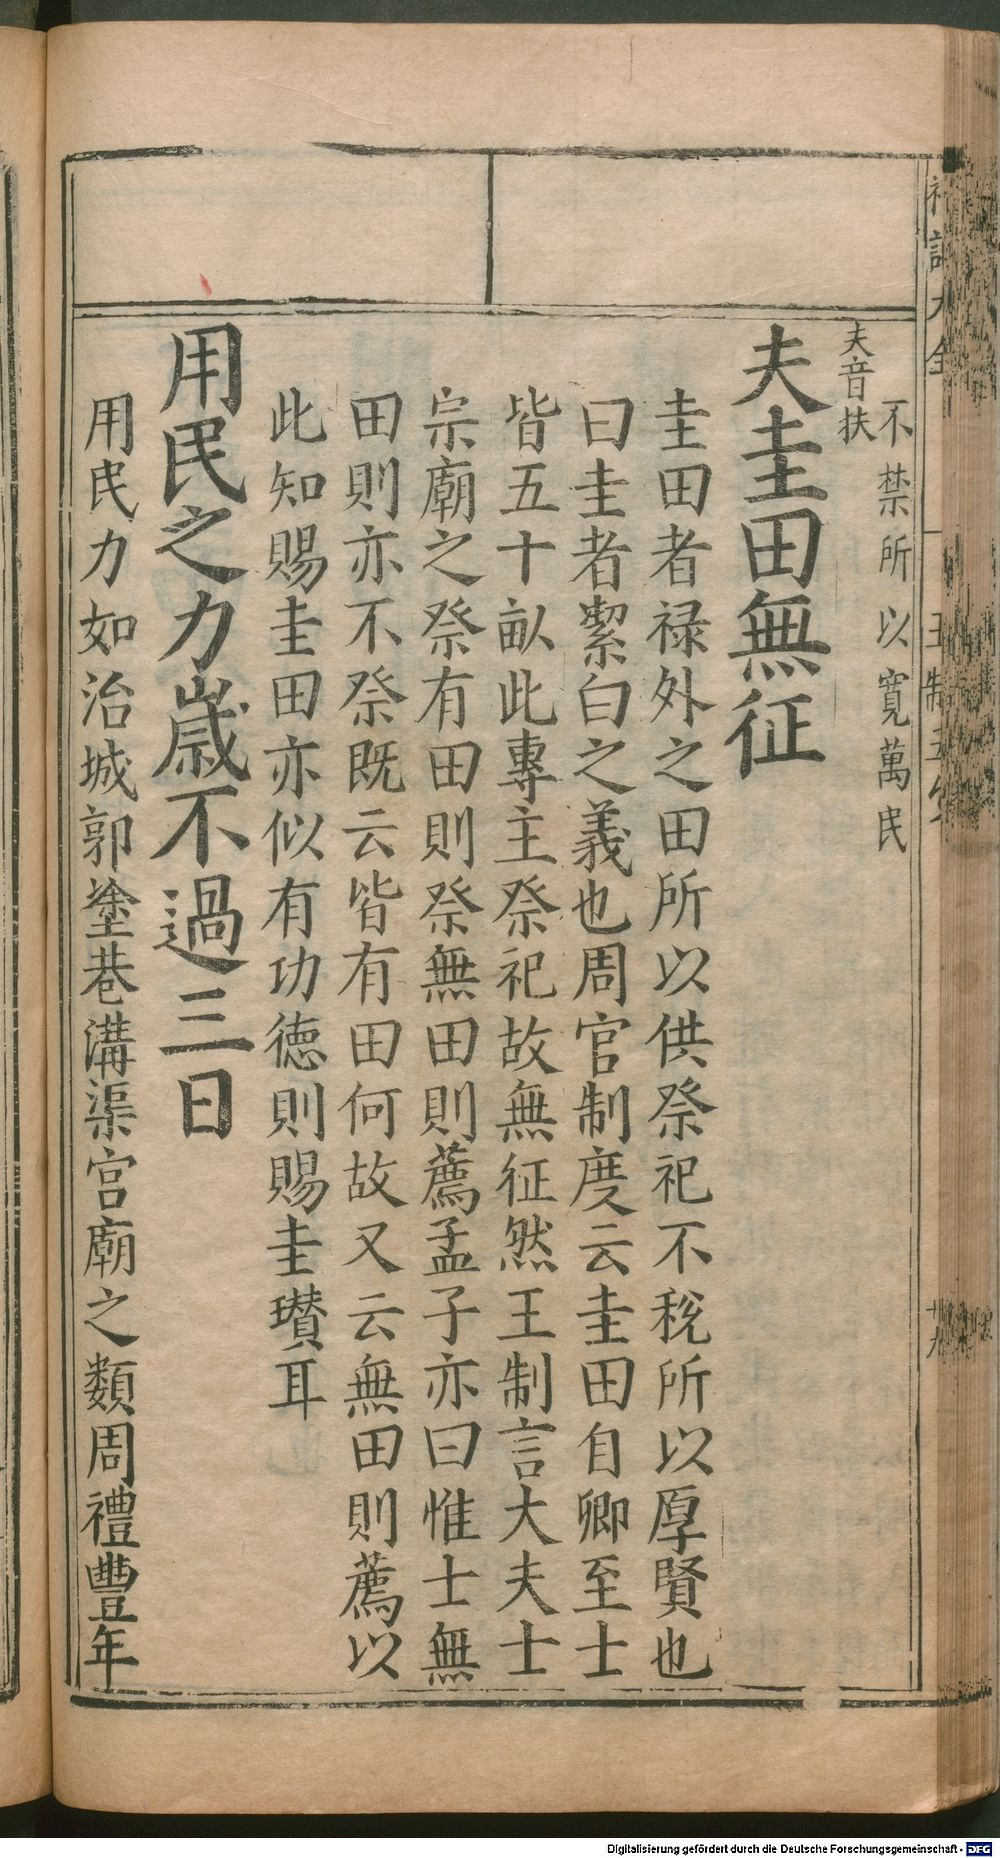 不禁所以寬萬民
夫音扶
夫圭田無征
圭田者禄外之田所以供祭祀不稅所以厚賢也
曰圭者絜白之義也周官制度云圭田自卿至士
皆五十畝此專主祭祀故無征然王制言大夫士
宗廟之祭有田則祭無田則薦孟子亦曰惟士無
田則亦不祭既云皆有田何故又云無田則薦以
此知賜圭田亦似有功德則賜圭瓚耳
用民之力歲不過三日
用民力如治城郭塗巷溝渠宮廟之類周禮豐年
Digitalisierung gefördert durch die Deutsche Forschungsgemeinschaft - DFG